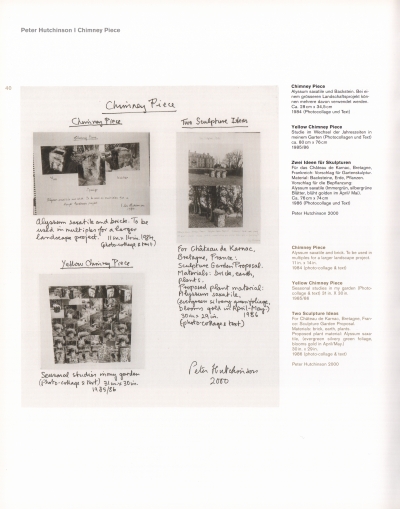 Peter Hutchinson I Chimney Piece
40
Chimney Piece
Chimney Piece
Alyssum saxatile and brick. To be
used in multiples for a larger
landscape project. 11in x 14in. 1984
(photo-collage & text)
Yellow Chimney Piece
Seasonal studies in my garden
(Photo-collage & text) 31in x 30in.
1985/86
Two Sculpture Ideas
For Château de Karnac,
Bretagne, France:
Sculpture Garden Proposal.
Materials: brick, earth,
plants.
Proposed plant material:
Alyssum saxatile.
(evergreen silvery green foliage,
blooms gold in April-May.)
30in x 29in. 1986
(photo-collage & text)
Peter Hutchinson
2000
Chimney Piece
Alyssum saxatile und Backstein. Bei ei-
nem grösseren Landschaftsprojekt kön-
nen mehrere davon verwendet werden.
Ca. 28 cm x 35,5 cm
1984 (Photocollage und Text)
Yellow Chimney Piece
Studie im Wechsel der Jahreszeiten in
meinem Garten (Photocollagen und Text)
ca. 80 cm x 76 cm
1985/86
Zwei Ideen für Skulpturen
Für das Château de Karnac, Bretagne,
Frankreich: Vorschlag für Gartenskulptur.
Material: Backsteine, Erde, Pflanzen.
Vorschlag für die Bepflanzung:
Alyssum saxatile (immergrün, silbergrüne
Blätter, blüht golden im April/ Mai).
Ca. 76 cm x 74 cm
1986 (Photocollage und Text)
Peter Hutchinson 2000
Chimney Piece
Alyssum saxatile and brick. To be used in
multiples for a larger landscape project.
11 in. x 14 in.
1984 (photo-collage & text)
Yellow Chimney Piece
Seasonal studies in my garden (Photo-
collage & text) 31 in. X 30 in.
1985/86
Two Sculpture Ideas
For Château de Karnac, Bretagne, Fran-
ce: Sculpture Garden Proposal
Materials: brick, earth, plants.
Proposed plant material: Alyssum saxa-
tile, (evergreen silvery green foliage,
blooms gold in April/May.)
30 in. x 29 in.
1986 (photo-collage & text)
Peter Hutchinson 2000